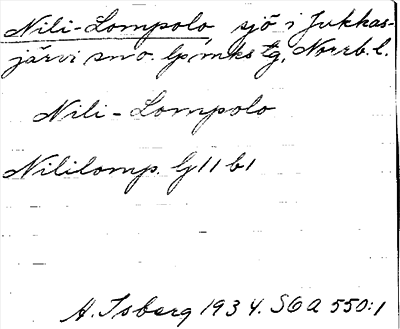 Nili-Lompolo, sjö i Jukkas-
järvi sn o. lpmks tg, Norrb. l.
Nili-Lompolo
Nililomp. G 11 b1
A. Isberg 1934. SOA 550:1